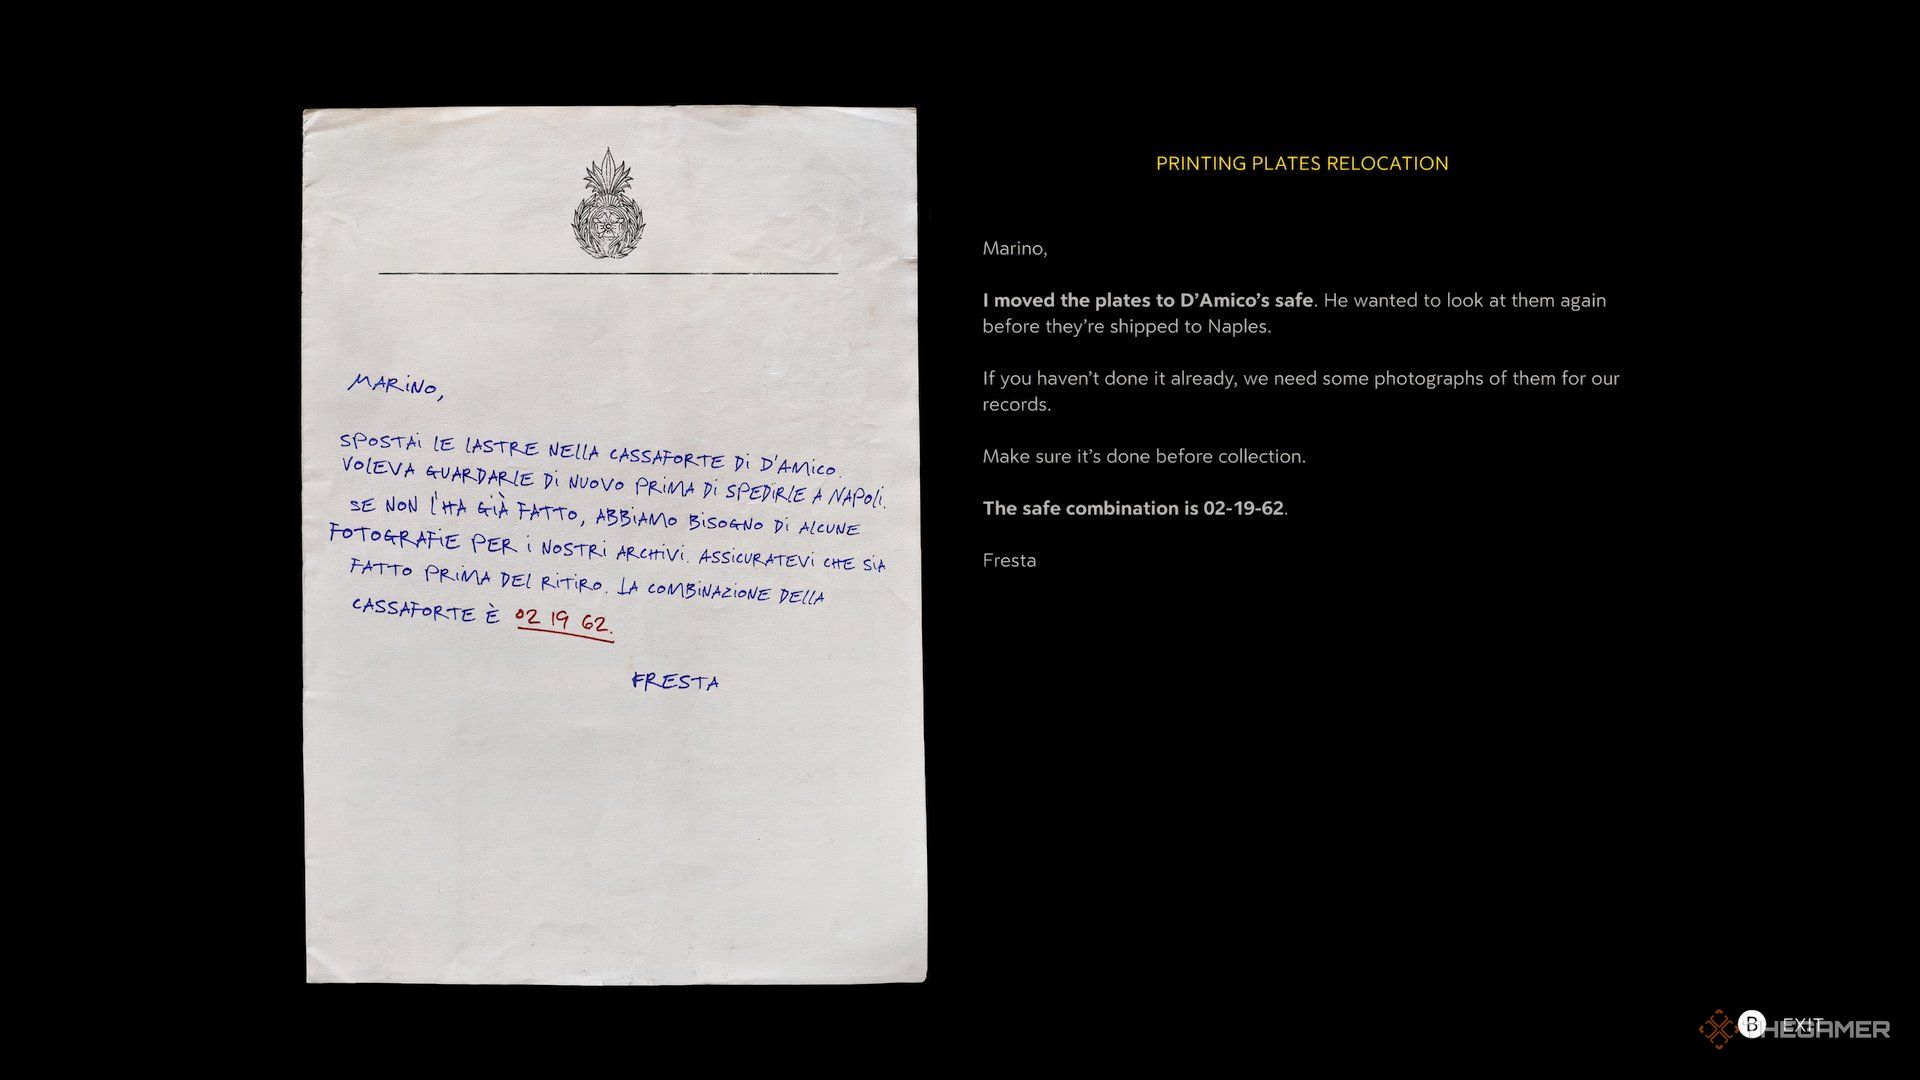 MARINO,
SPOSTAI LE LASTRE NELLA CASSAFORTE DI D'AMICO.
VOLEVA GUARDARLE DI NUOVO PRIMA DI SPEDIRLE A NAPOLI.
SE NON L'HA GIÀ FATTO, ABBIAMO BISOGNO DI ALCUNE
FOTOGRAFIE PER I NOSTRI ARCHIVI. ASSICURATEVI CHE SIA
FATTO PRIMA DEL RITIRO. LA COMBINAZIONE DELLA
CASSAFORTE È 02 19 62.
FRESTA
PRINTING PLATES RELOCATION
Marino,
I moved the plates to D’Amico’s safe. He wanted to look at them again
before they’re shipped to Naples.
If you haven’t done it already, we need some photographs of them for our
records.
Make sure it’s done before collection.
The safe combination is 02-19-62.
Fresta
B EXIT
THEGAMER